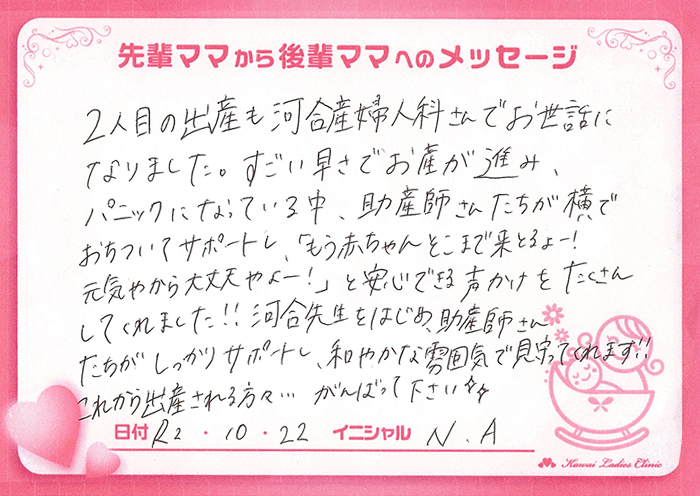 先輩ママから後輩ママへのメッセージ
2人目の出産も河合産婦人科さんでお世話に
なりました。すごい早さでお産が進み、
パニックになっている中、助産師さんたちが横で
おちついてサポートし、「もう赤ちゃんそこまで来とるよー!
元気やから大丈夫やよー!」と安心できる声かけをたくさん
してくれました!!河合先生をはじめ、助産師さん
たちがしっかりサポートし、和やかな雰囲気で見守ってくれます!!
これから出産される方々… がんばって下さい☆☆
日付 R2・10・22 イニシャル N.A
Kawai Ladies Clinic